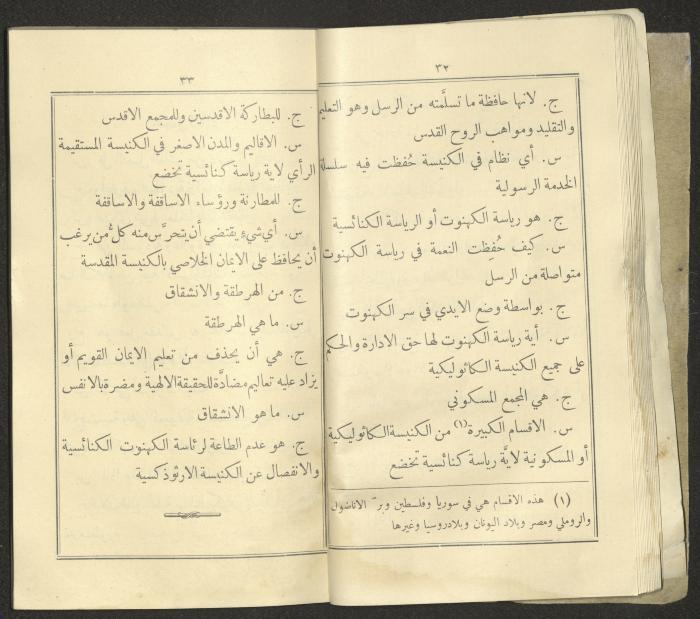 ٣٢
ج. لانها حافظة ما تسلَّمته من الرسل وهو التعليم
والتقليد ومواهب الروح القدس
س. أي نظام في الكنيسة حُفظت فيه سلسلة
الخدمة الرسولية
ج. هو رياسة الكهنوت أو الرياسة الكنائسية
س. كيف حُفِظت النعمة في رياسة الكهنوت
متواصلة من الرسل
ج. بواسطة وضع الايدي في سر الكهنوت
س. أية رياسة الكهنوت لها حق الادارة والحكم
على جميع الكنيسة الكاثوليكية
ج. هي المجمع المسكوني
س. الاقسام الكبيرة (١) من الكنيسة الكاثوليكية
أو المسكونية لايَّة رياسة كنائسية تخضع
(١) هذه الاقسام هي في سوريا وفلسطين وبرّ الاناضول
والروملي ومصر وبلاد اليونان وبلادروسيا وغيرها
٣٣
ج. للبطاركة الاقدسين وللمجمع الاقدس
س. الاقاليم والمدن الاصغر في الكنيسة المستقيمة
الرأي لاية رياسة كنائسية تخضع
ج. للمطارنة ورؤساء الاساقفة والاساقفة
س. أي شيءٍ يقتضي أن يتحرَّس منه كلُّ من يرغب
أن يحافظ على الايمان الخلاصي بالكنيسة المقدسة
ج. من الهرطقة والانشقاق
س. ما هي الهرطقة
ج. هي أن يحذف من تعليم الايمان القويم أو
يزاد عليه تعاليم مضادَّة للحقيقة الالهية ومضرة بالانفس
س. ما هو الانشقاق
ج. هو عدم الطاعة لرئاسة الكهنوت الكنائسية
والانفصال عن الكنيسة الارثوذكسية